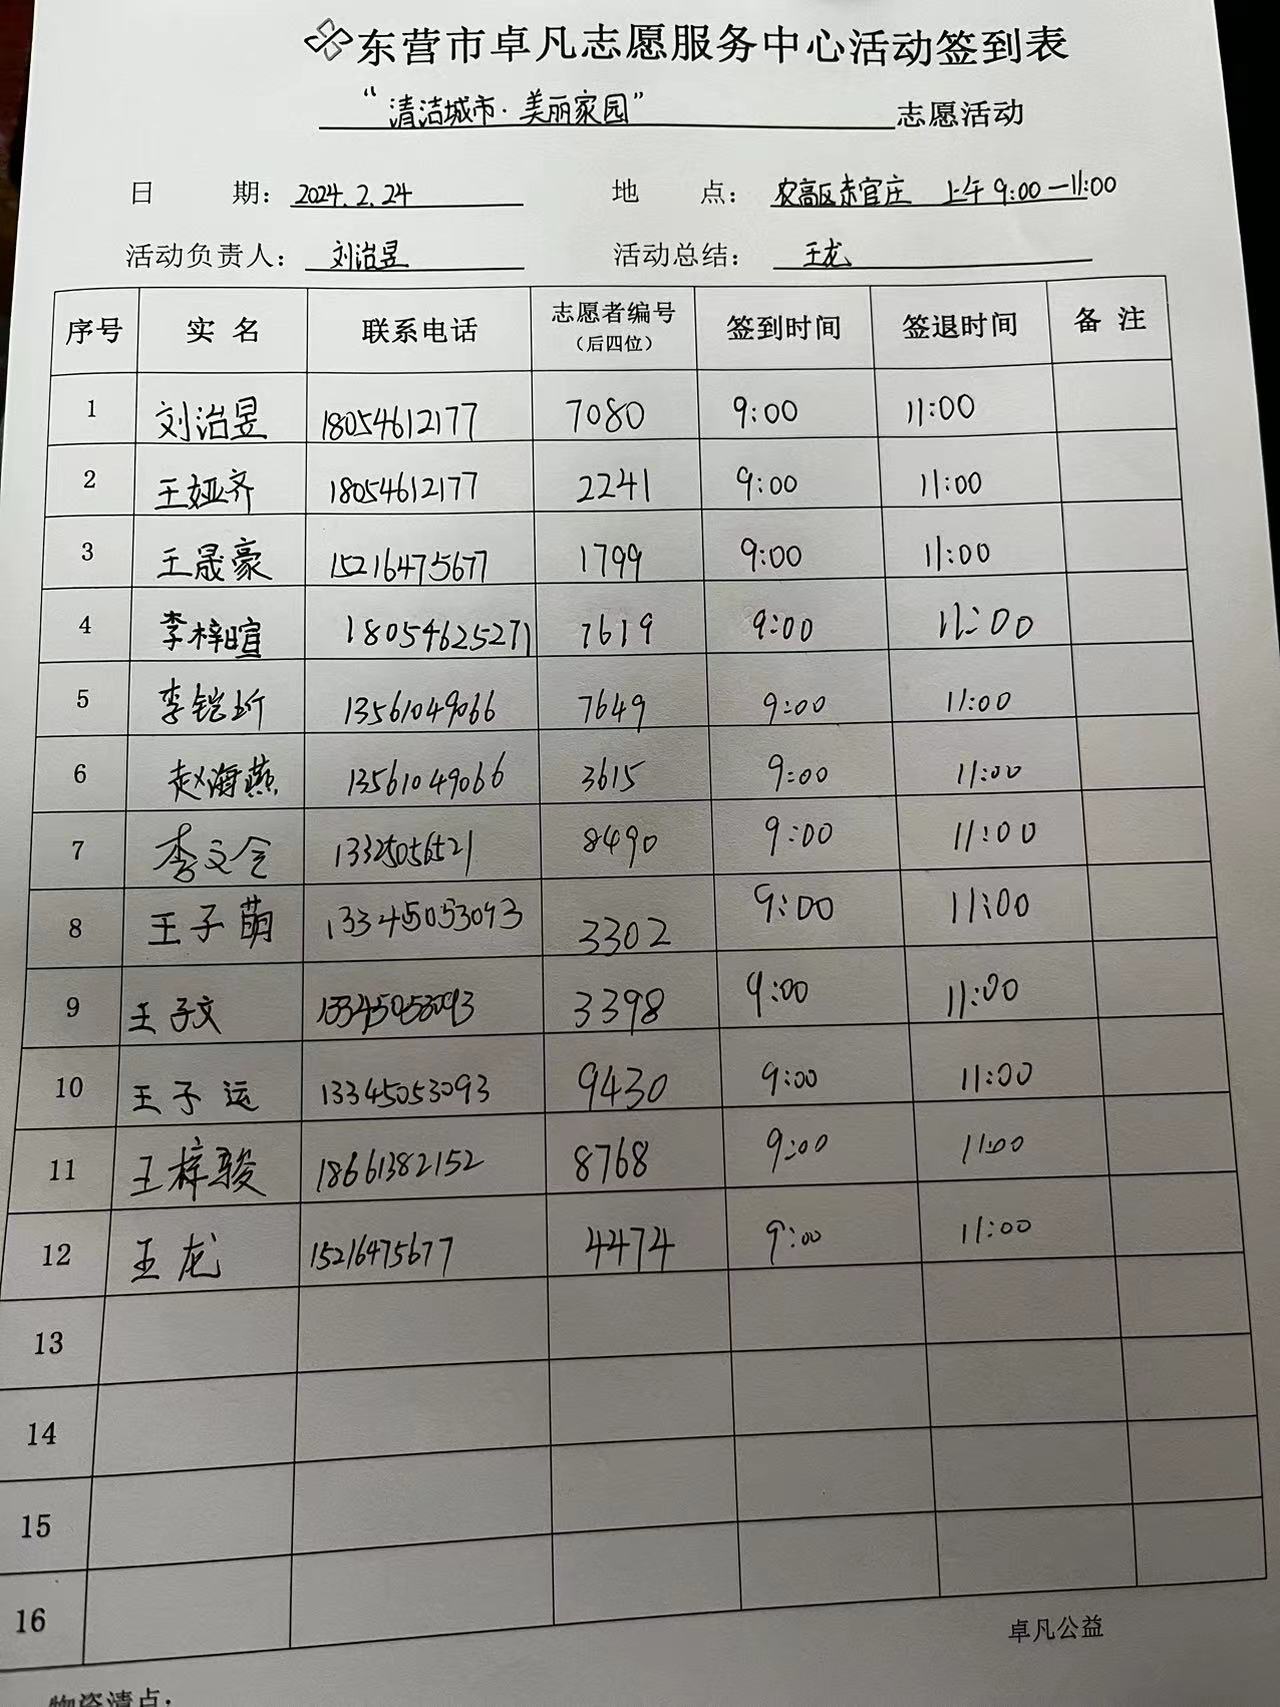 东营市卓凡志愿服务中心活动签到表
“清洁城市·美丽家园” 志愿活动
日 期： 2024.2.24 地 点： 农高区东官庄 上午 9:00—11:00
活动负责人： 刘治昱 活动总结： 王龙
序号 实 名 联系电话 志愿者编号（后四位） 签到时间 签退时间 备 注
1 刘治昱 18054612177 7080 9:00 11:00
2 王娅齐 18054612177 2241 9:00 11:00
3 王晟豪 15216475677 1799 9:00 11:00
4 李梓暄 18054625271 7619 9:00 11:00
5 李铠圻 13561049066 7649 9:00 11:00
6 赵海燕 13561049066 3615 9:00 11:00
7 李文 8490 9:00 11:00
8 王子萌 13345053093 3302 9:00 11:00
9 王子文 13345053093 3398 9:00 11:00
10 王子运 13345053093 9430 9:00 11:00
11 王梓骏 18661382152 8768 9:00 11:00
12 王龙 15216475677 4474 9:00 11:00
13
14
15
16
卓凡公益
物资清点：